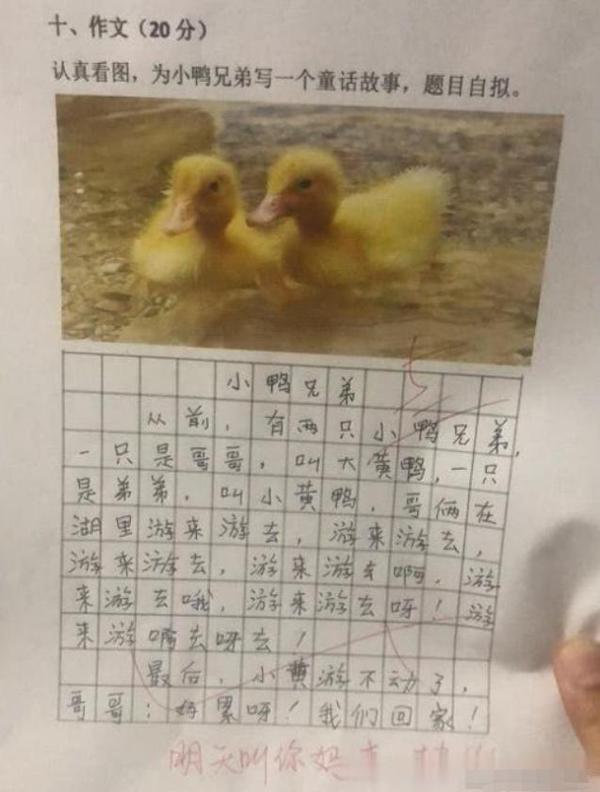 十、作文(20分)
认真看图，为小鸭兄弟写一个童话故事，题目自拟。
小鸭兄弟
从前，有两只小鸭兄弟，
一只是哥哥，叫大黄鸭，一只
是弟弟，叫小黄鸭，哥俩在
湖里游来游去，游来游去，
游来游去，游来游去啊，游
来游去哦，游来游去呀！游
来游啊去呀去！
最后，小黄游不动了，
哥哥：好累呀！我们回家！
明天叫你妈来